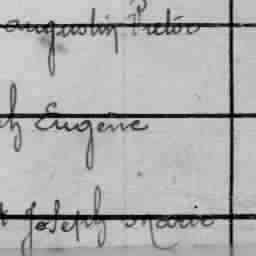 augustin Victor
h Eugène
t Joseph Marie